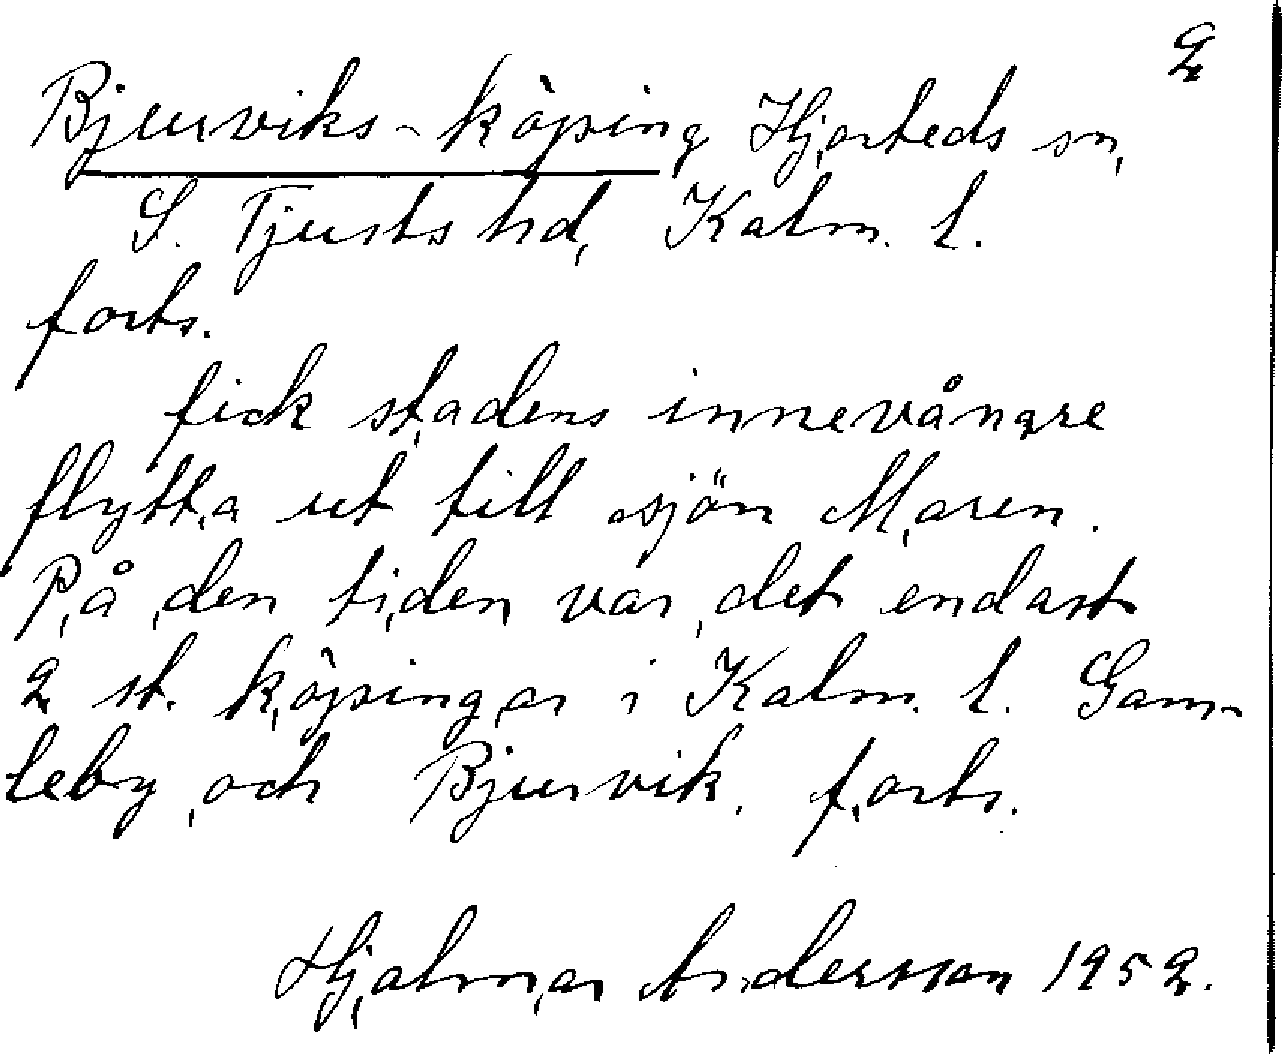 2
Bjurviks-köping Hjorteds sn,
S. Tjusts hd, Kalm. l.
forts.
fick stadens innevångre
flytta ut till sjön Maren.
På den tiden var det endast
2 st. köpingar i Kalm. l. Gam-
leby och Bjurvik. forts.
Hjalmar Andersson 1952.